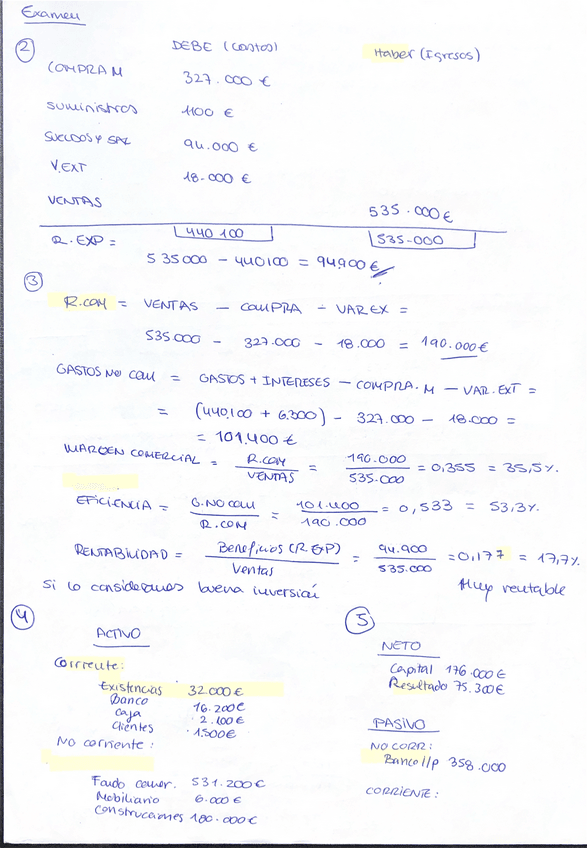 Examen
2
DEBE (Costos) Haber (Igresos)
COMPRA M 327.000 €
suministros 1100 €
SUELDOS Y SAL 94.000 €
V.EXT 18.000 €
VENTAS 535.000 €
440 100 535.000
R. EXP =
535000 - 440100 = 94.900 €
3
R.COM = VENTAS - COMPRA - VAR EX =
535.000 - 327.000 - 18.000 = 190.000 €
GASTOS NO COM = GASTOS + INTERESES - COMPRA. M - VAR. EXT =
= (440.100 + 6.300) - 327.000 - 18.000 =
= 101.400 €
MARGEN COMERCIAL = R.COM / VENTAS = 190.000 / 535.000 = 0,355 = 35,5%
EFICIENCIA = G. NO COM / R. COM = 101.400 / 190.000 = 0,533 = 53,3%
RENTABILIDAD = Beneficios (R. EXP) / Ventas = 94.900 / 535.000 = 0,177 = 17,7%
Si lo consideramos buena inversioí Muy rentable
4 5
ACTIVO
Corriente:
Existencias 32.000 €
Banco 16.200 €
Caja 2.100 €
Clientes 1.500 €
No corriente:
Fondo comer. 531.200 €
Mobiliario 6.000 €
Construcciones 180.000 €
NETO
Capital 176.000 €
Resultado 75.300 €
PASIVO
NO CORR:
Banco l/p 358.000
CORRIENTE: